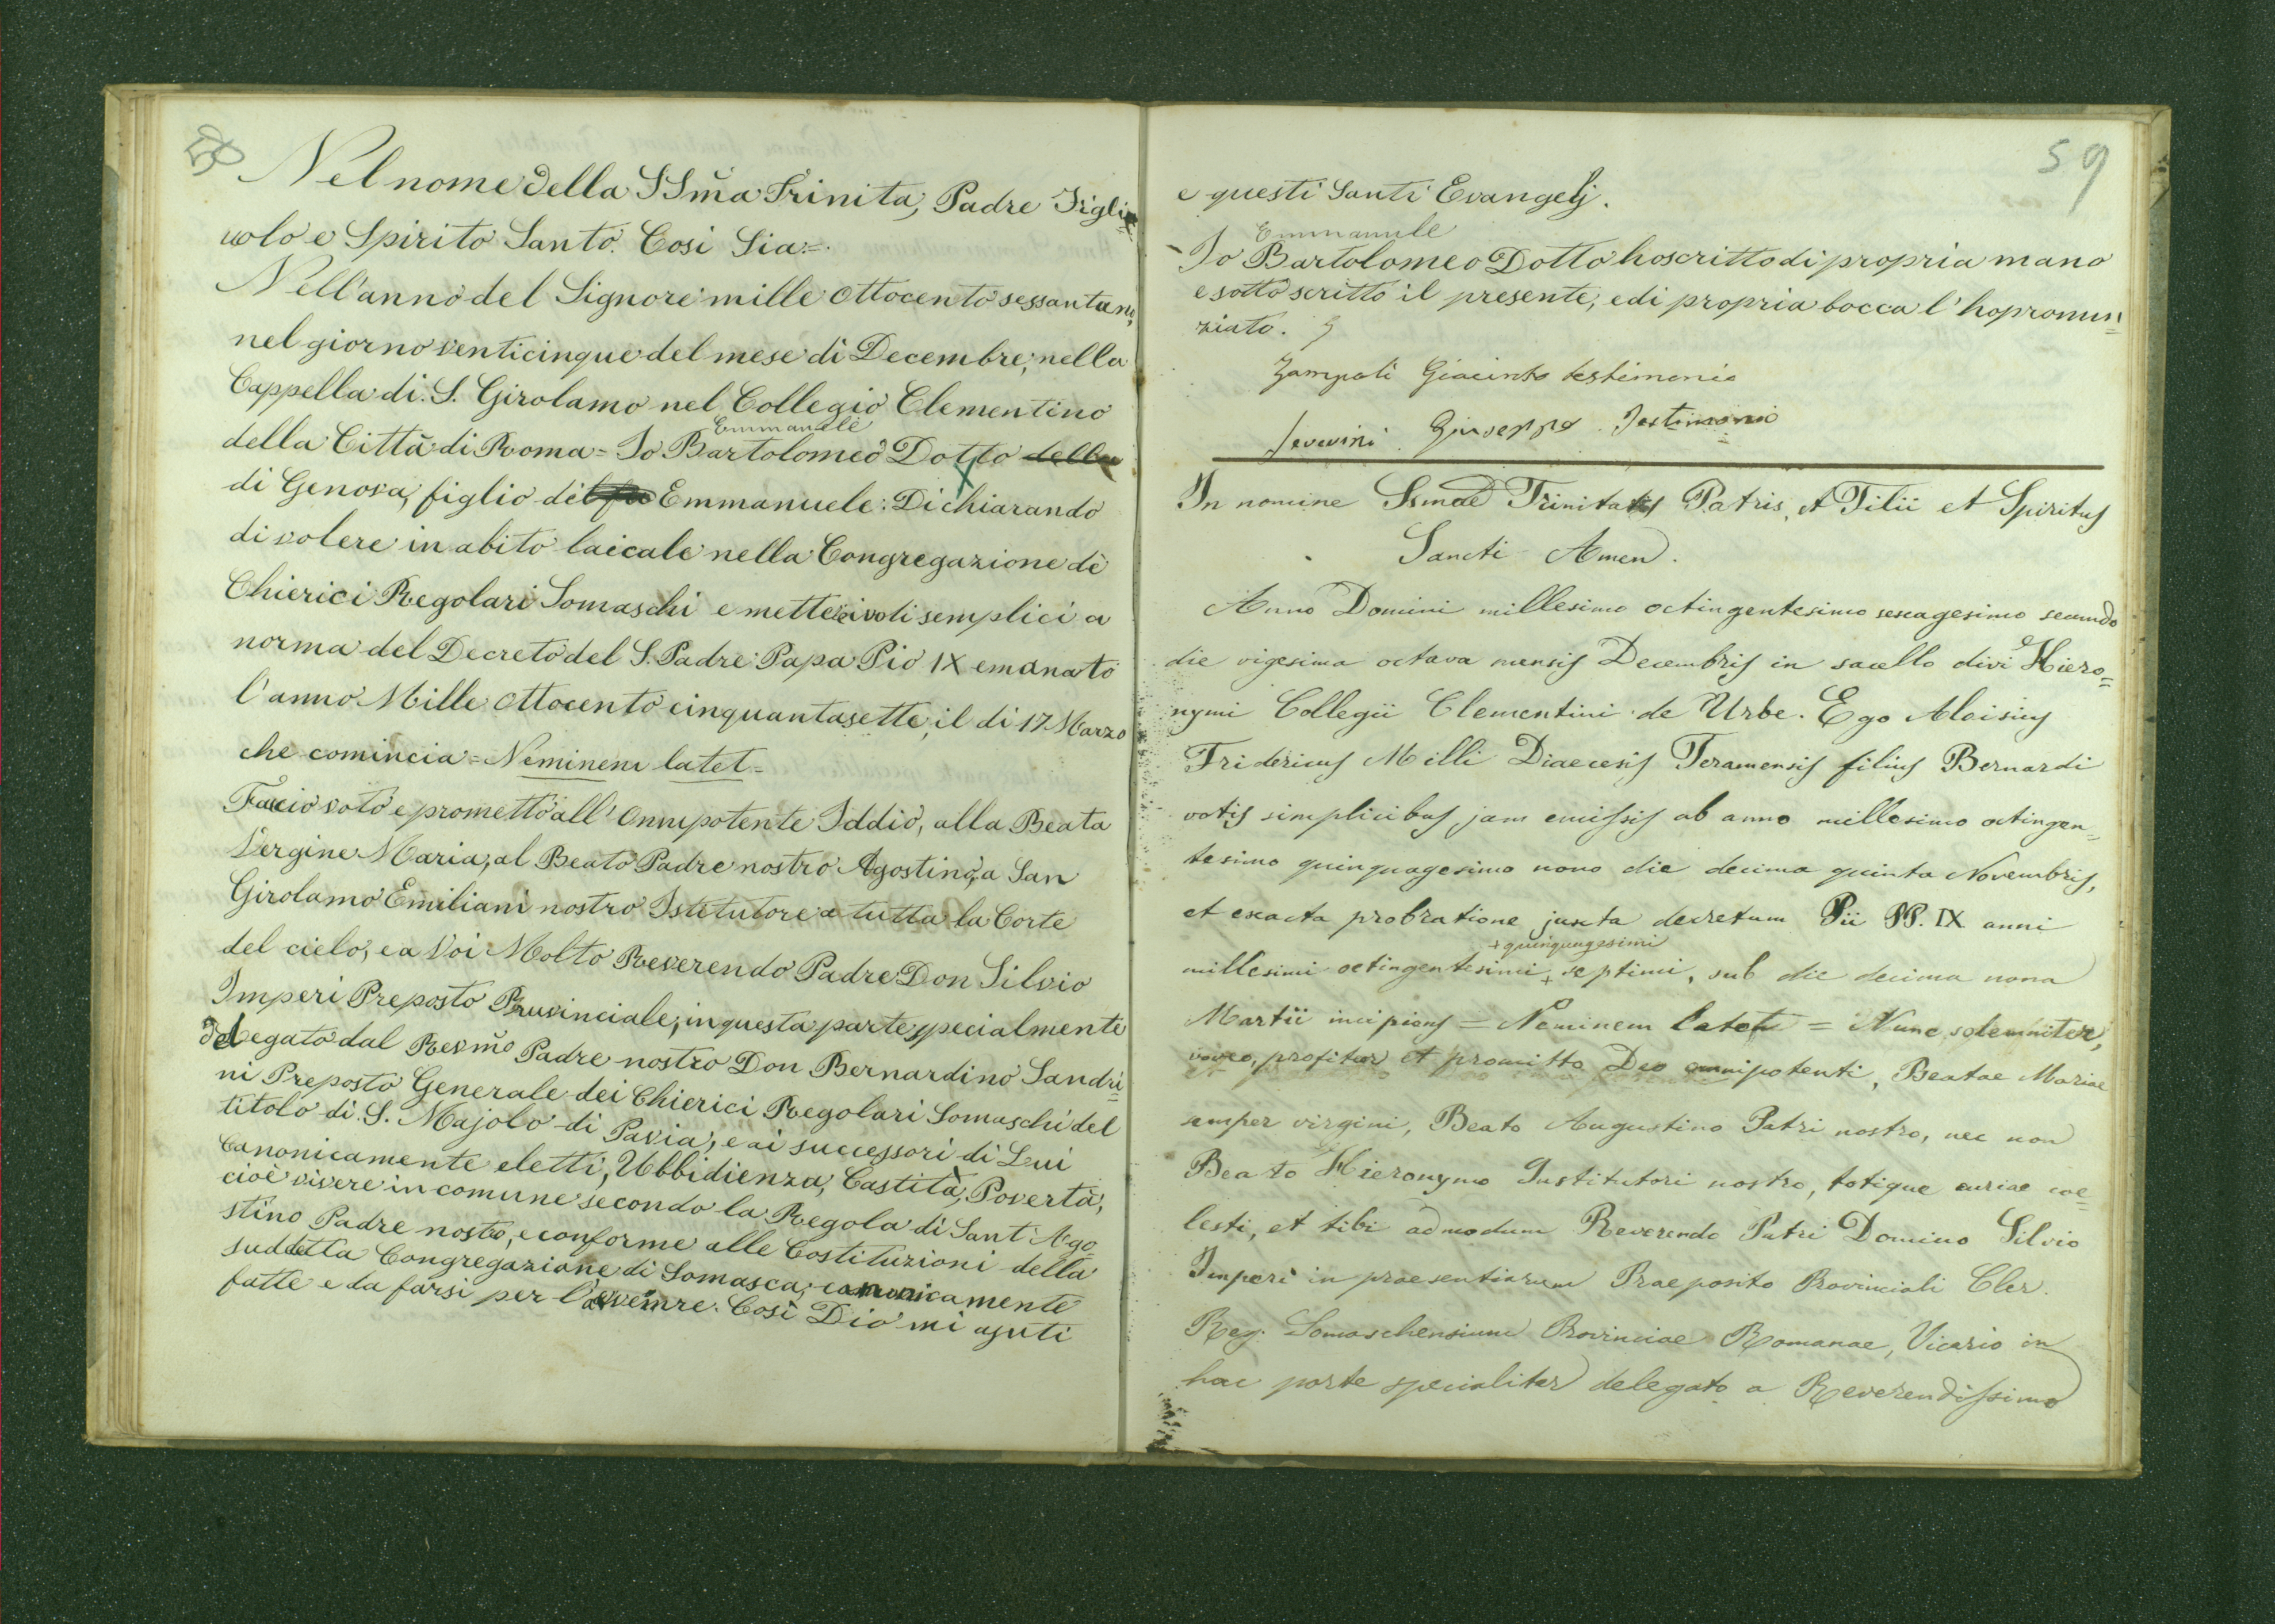 58
Nel nome della SSm̃a Trinita, Padre Figli
uolo e Spirito Santo. Così Sia =.
Nell'anno del Signore mille ottocento sessantuno,
nel giorno venticinque del mese di Decembre, nella
Cappella di S. Girolamo nel Collegio Clementino
Emmanuele
della Città di Roma = Io Bartolomeo Dotto della
di Genova, figlio di Emmanuele: Dichiarando
di volere in abito laicale nella Congregazione dè
Chierici Regolari Somaschi emettere i voti semplici a
norma del Decreto del S. Padre Papa Pio IX emanato
l'anno Mille ottocento cinquantasette, il di 17 Marzo
che comincia = Neminem latet =
Faccio voto e prometto all' Onnipotente Iddio, alla Beata
Vergine Maria, al Beato Padre nostro Agostino, a San
Girolamo Emiliani nostro Istetutore a tutta la Corte
del cielo, e a Voi Molto Reverendo Padre Don Silvio
Imperi Preposto Pruvinciale, in questa parte specialmente
delegato dal Revm̃o Padre nostro Don Bernardino Sandri=
ni Preposto Generale dei Chierici Regolari Somaschi del
titolo di S. Majolo di Pavia, e ai successori di Lui
Canonicamente eletti, Ubbidienza, Castità, Povertà,
cioè vivere in comune secondo la Regola di Sant'Ago=
stino Padre nostro, e conforme alle Costituzioni della
suddetta Congregazione di Somasca, canonicamente
fatte e da farsi per l'avvenire. Così Dio mi ajuti
59
e questi Santi Evangelj.
Emmanuele
Io Bartolomeo Dotto ho scritto di propria mano
e sotto scritto il presente, e di propria bocca l'ho pronun=
ziato.
Zampoli Giacinto testimonio
Severini Giuseppe Testimonio
In nomine Ssmae Trinitatis Patris, et Filii et Spiritus
Sancti Amen.
Anno Domini millesimo octingentesimo sexagesimo secundo
die vigesima octava mensis Decembris in sacello divi Hiero=
nymi Collegii Clementini de Urbe. Ego Aloisius
Fridericus Milli Diaecesis Teramensis filius Bernardi
votis simplicibus jam emissis ab anno millesimo octingen=
tesimo quinquagesimo nono die decima quinta Novembris,
et exacta probratione juxta decretum Pii PP. IX anni
+ quinquagesimi
millesimi octingentesimi + septimi, sub die decima nona
Martii incipiens = Neminem latet = Nunc solemniter,
voveo, profiteor et promitto Deo omnipotenti, Beatae Mariae
semper virgini, Beato Augustino Patri nostro, nec non
Beato Hieronymo Institutori nostro, totique curiae coe=
lesti, et tibi admodum Reverendo Patri Domino Silvio
Imperi in praesentiarum Praeposito Provinciali Cler.
Reg. Somaschensium Provinciae Romanae, Vicario in
hac parte specialiter delegato a Reverendissimo